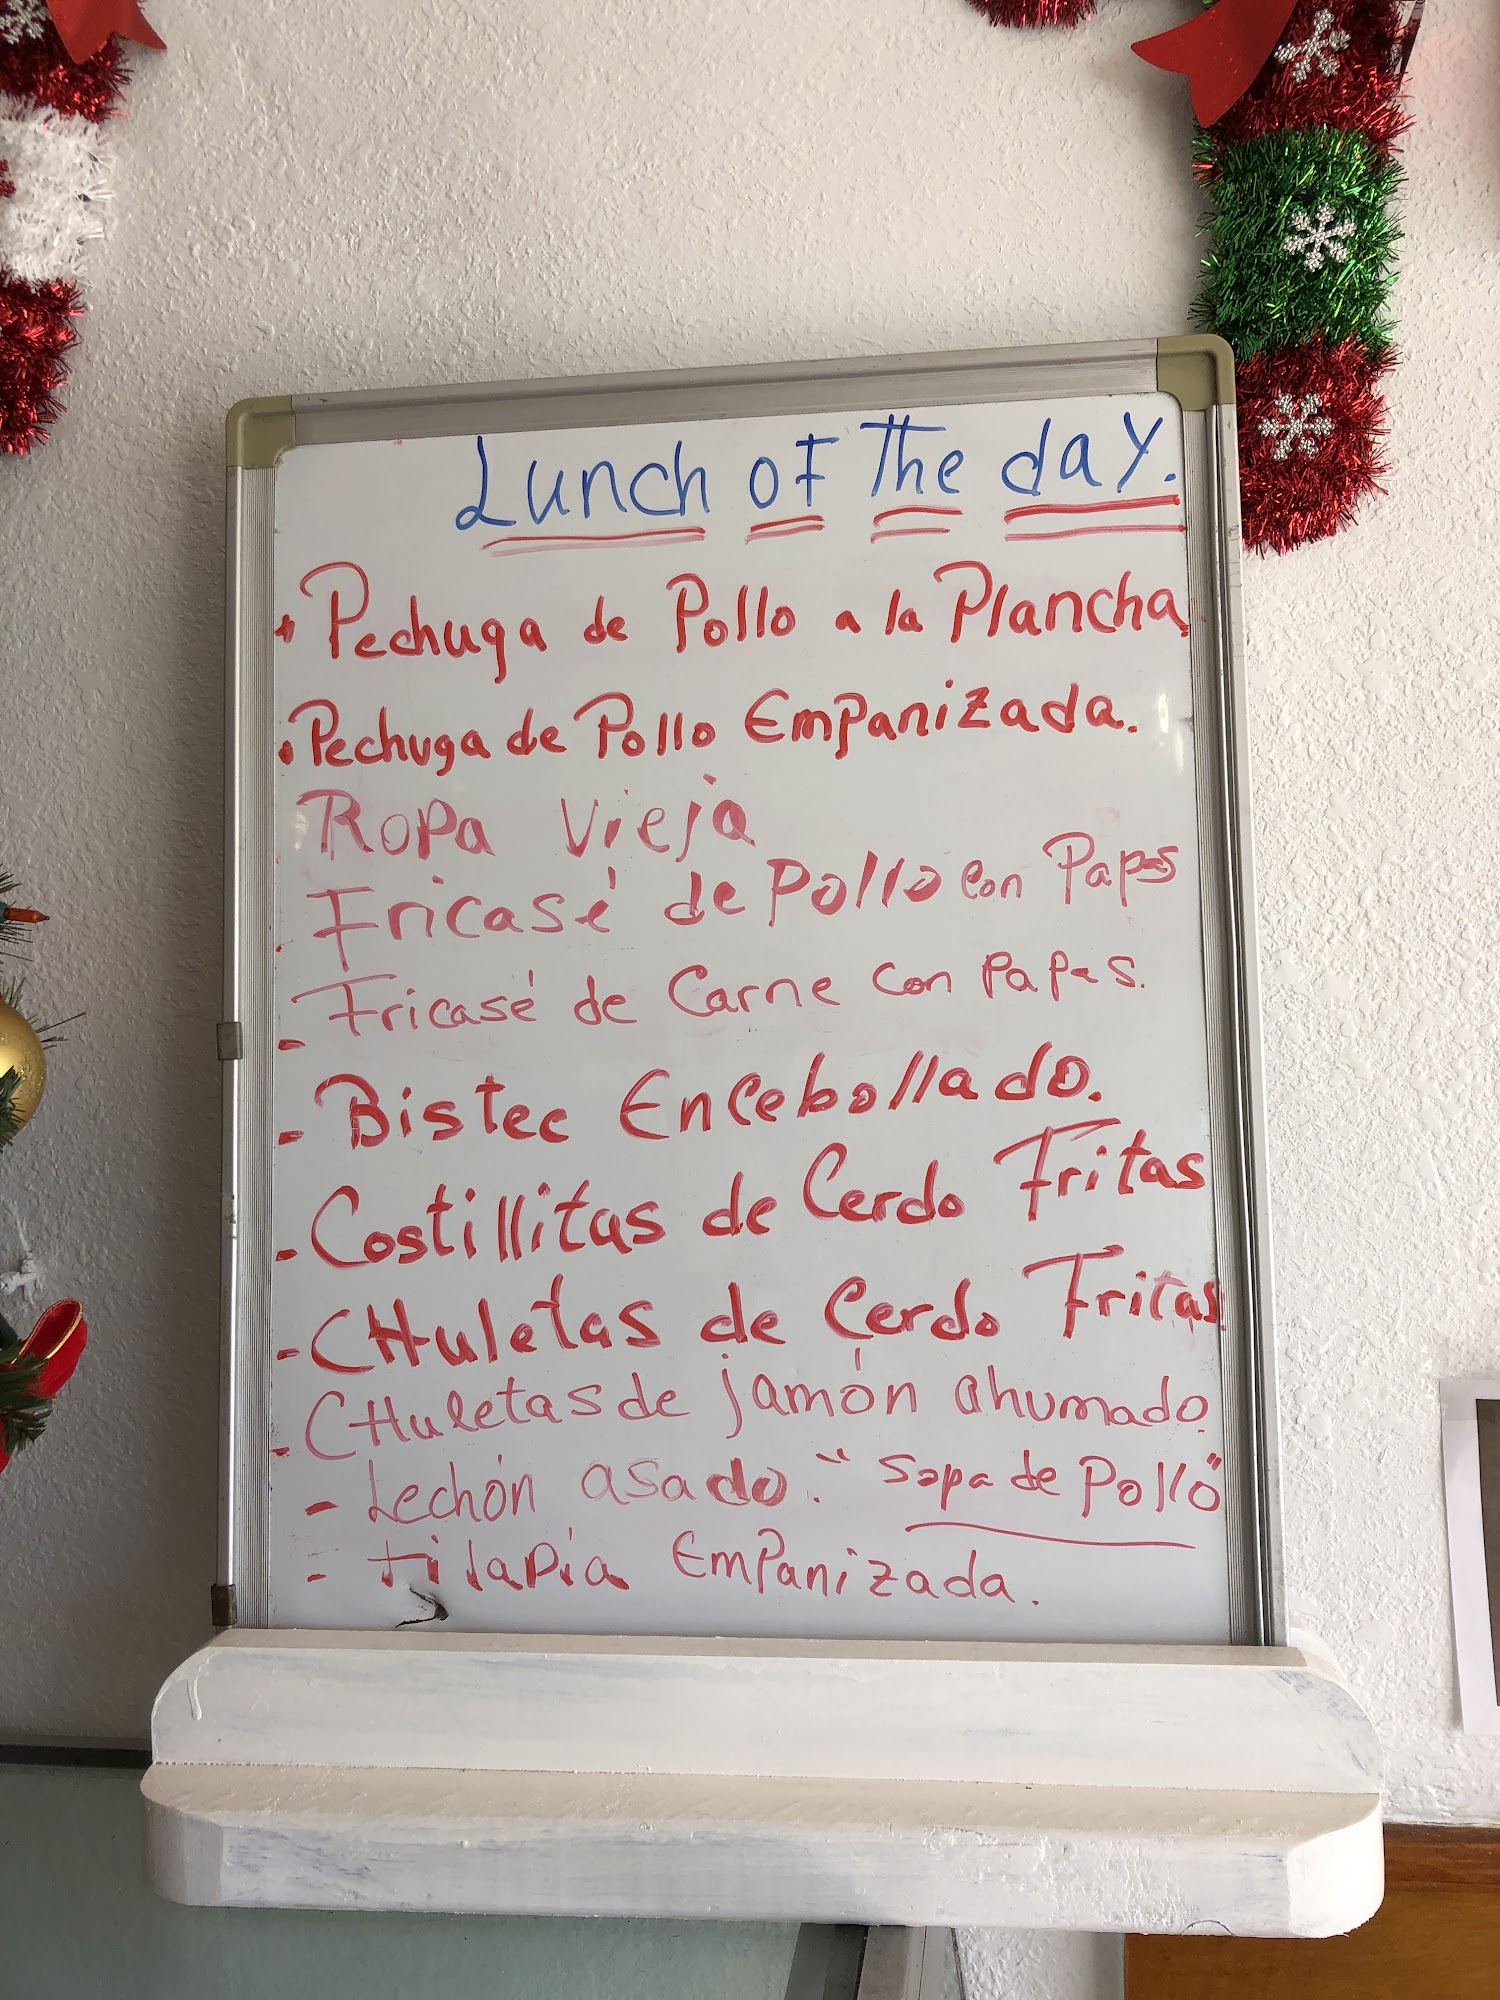 Lunch of The day.
Pechuga de Pollo a la Plancha
Pechuga de Pollo Empanizada.
Ropa Vieja
Fricasé de Pollo con Papas
- Fricasé de Carne con Papas.
- Bistec Encebollado.
- Costillitas de Cerdo Fritas
- CHuletas de Cerdo Fritas
- CHuletas de jamón ahumado
- Lechón asado. "Sopa de Pollo"
- tilapia Empanizada.